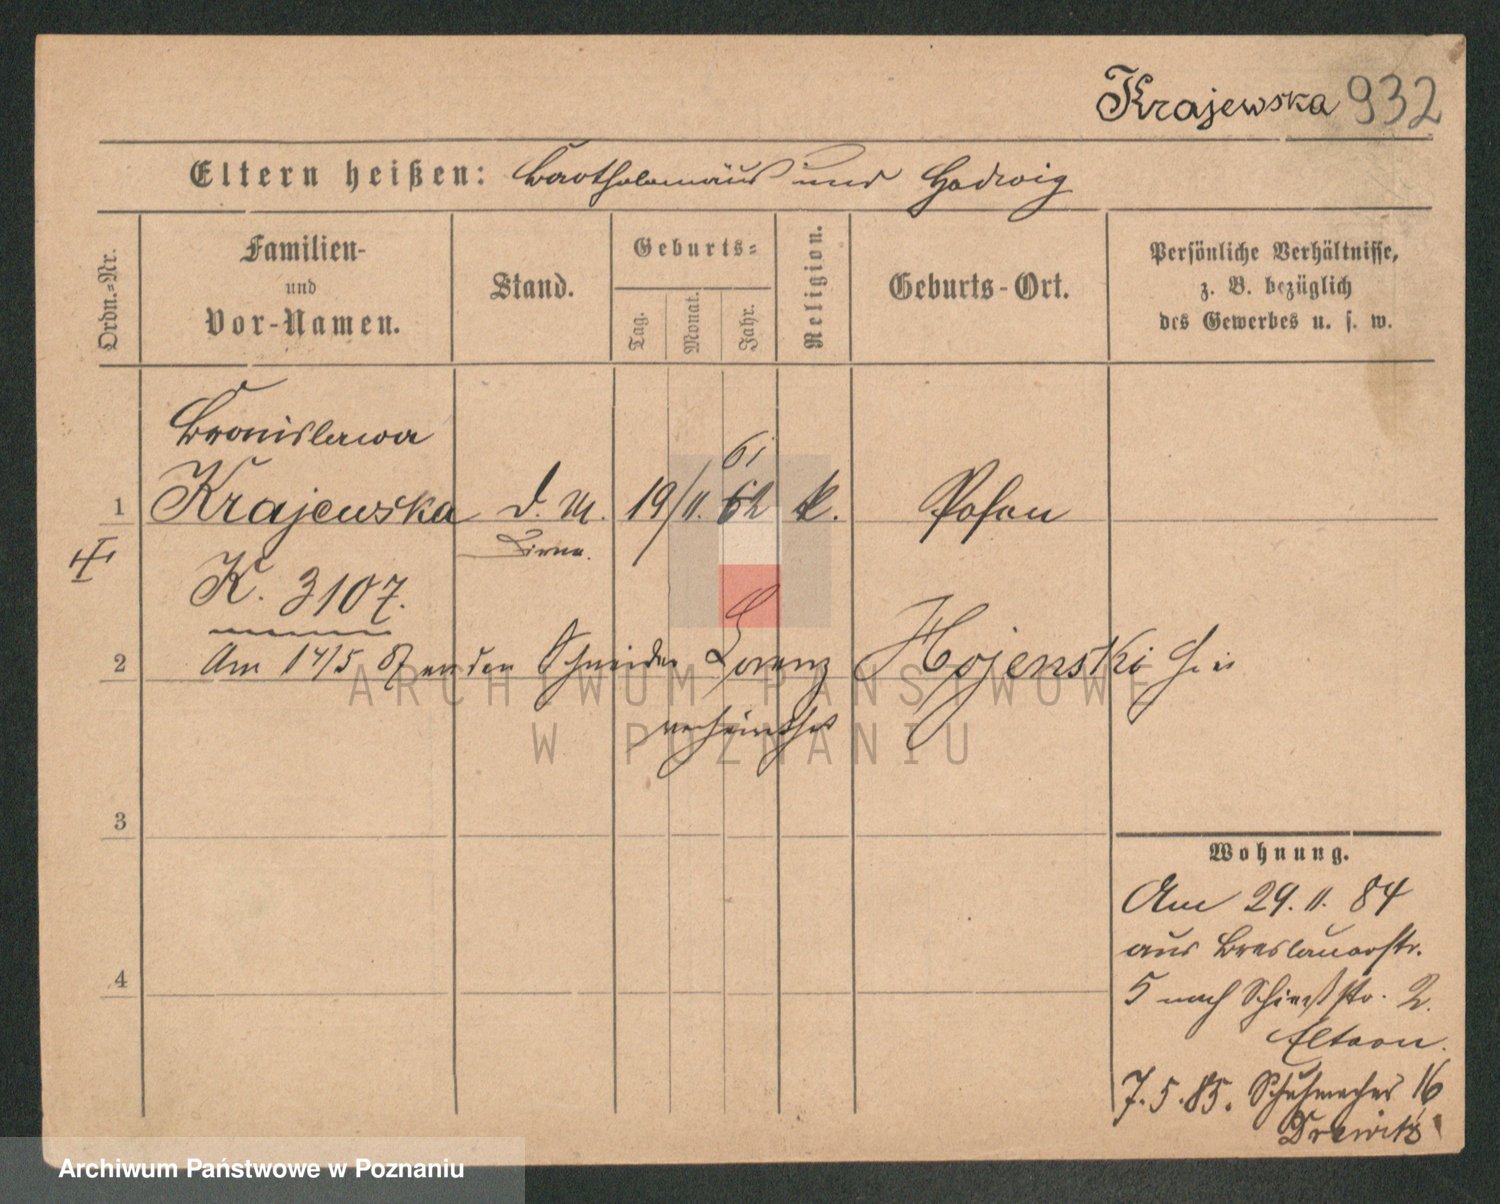 Krajewska 932
Eltern heißen: Bartholomäus und Hedwig
Ordn.-Nr.
Familien-
und
Vor-Namen.
Stand.
Geburts-
Tag.
Monat.
Jahr.
Religion.
Geburts-Ort.
Persönliche Verhältnisse,
z. B. bezüglich
des Gewerbes u. s. w.
Bronislawa
61
1 Krajewska d. M. 19/11. 62 k. Posen
Dirne.
K. 3107.
2 Am 14/5 87 an den Schneider Lorenz Hojenski hier
verheirathet
3
4
Wohnung.
Am 29. 11. 84
aus Breslauerstr.
5 nach Schießstr. 2.
Eltern.
7. 5. 85. Schuhmacher 16
Drewitz
ARCHIWUM PAŃSTWOWE
W POZNANIU
Archiwum Państwowe w Poznaniu